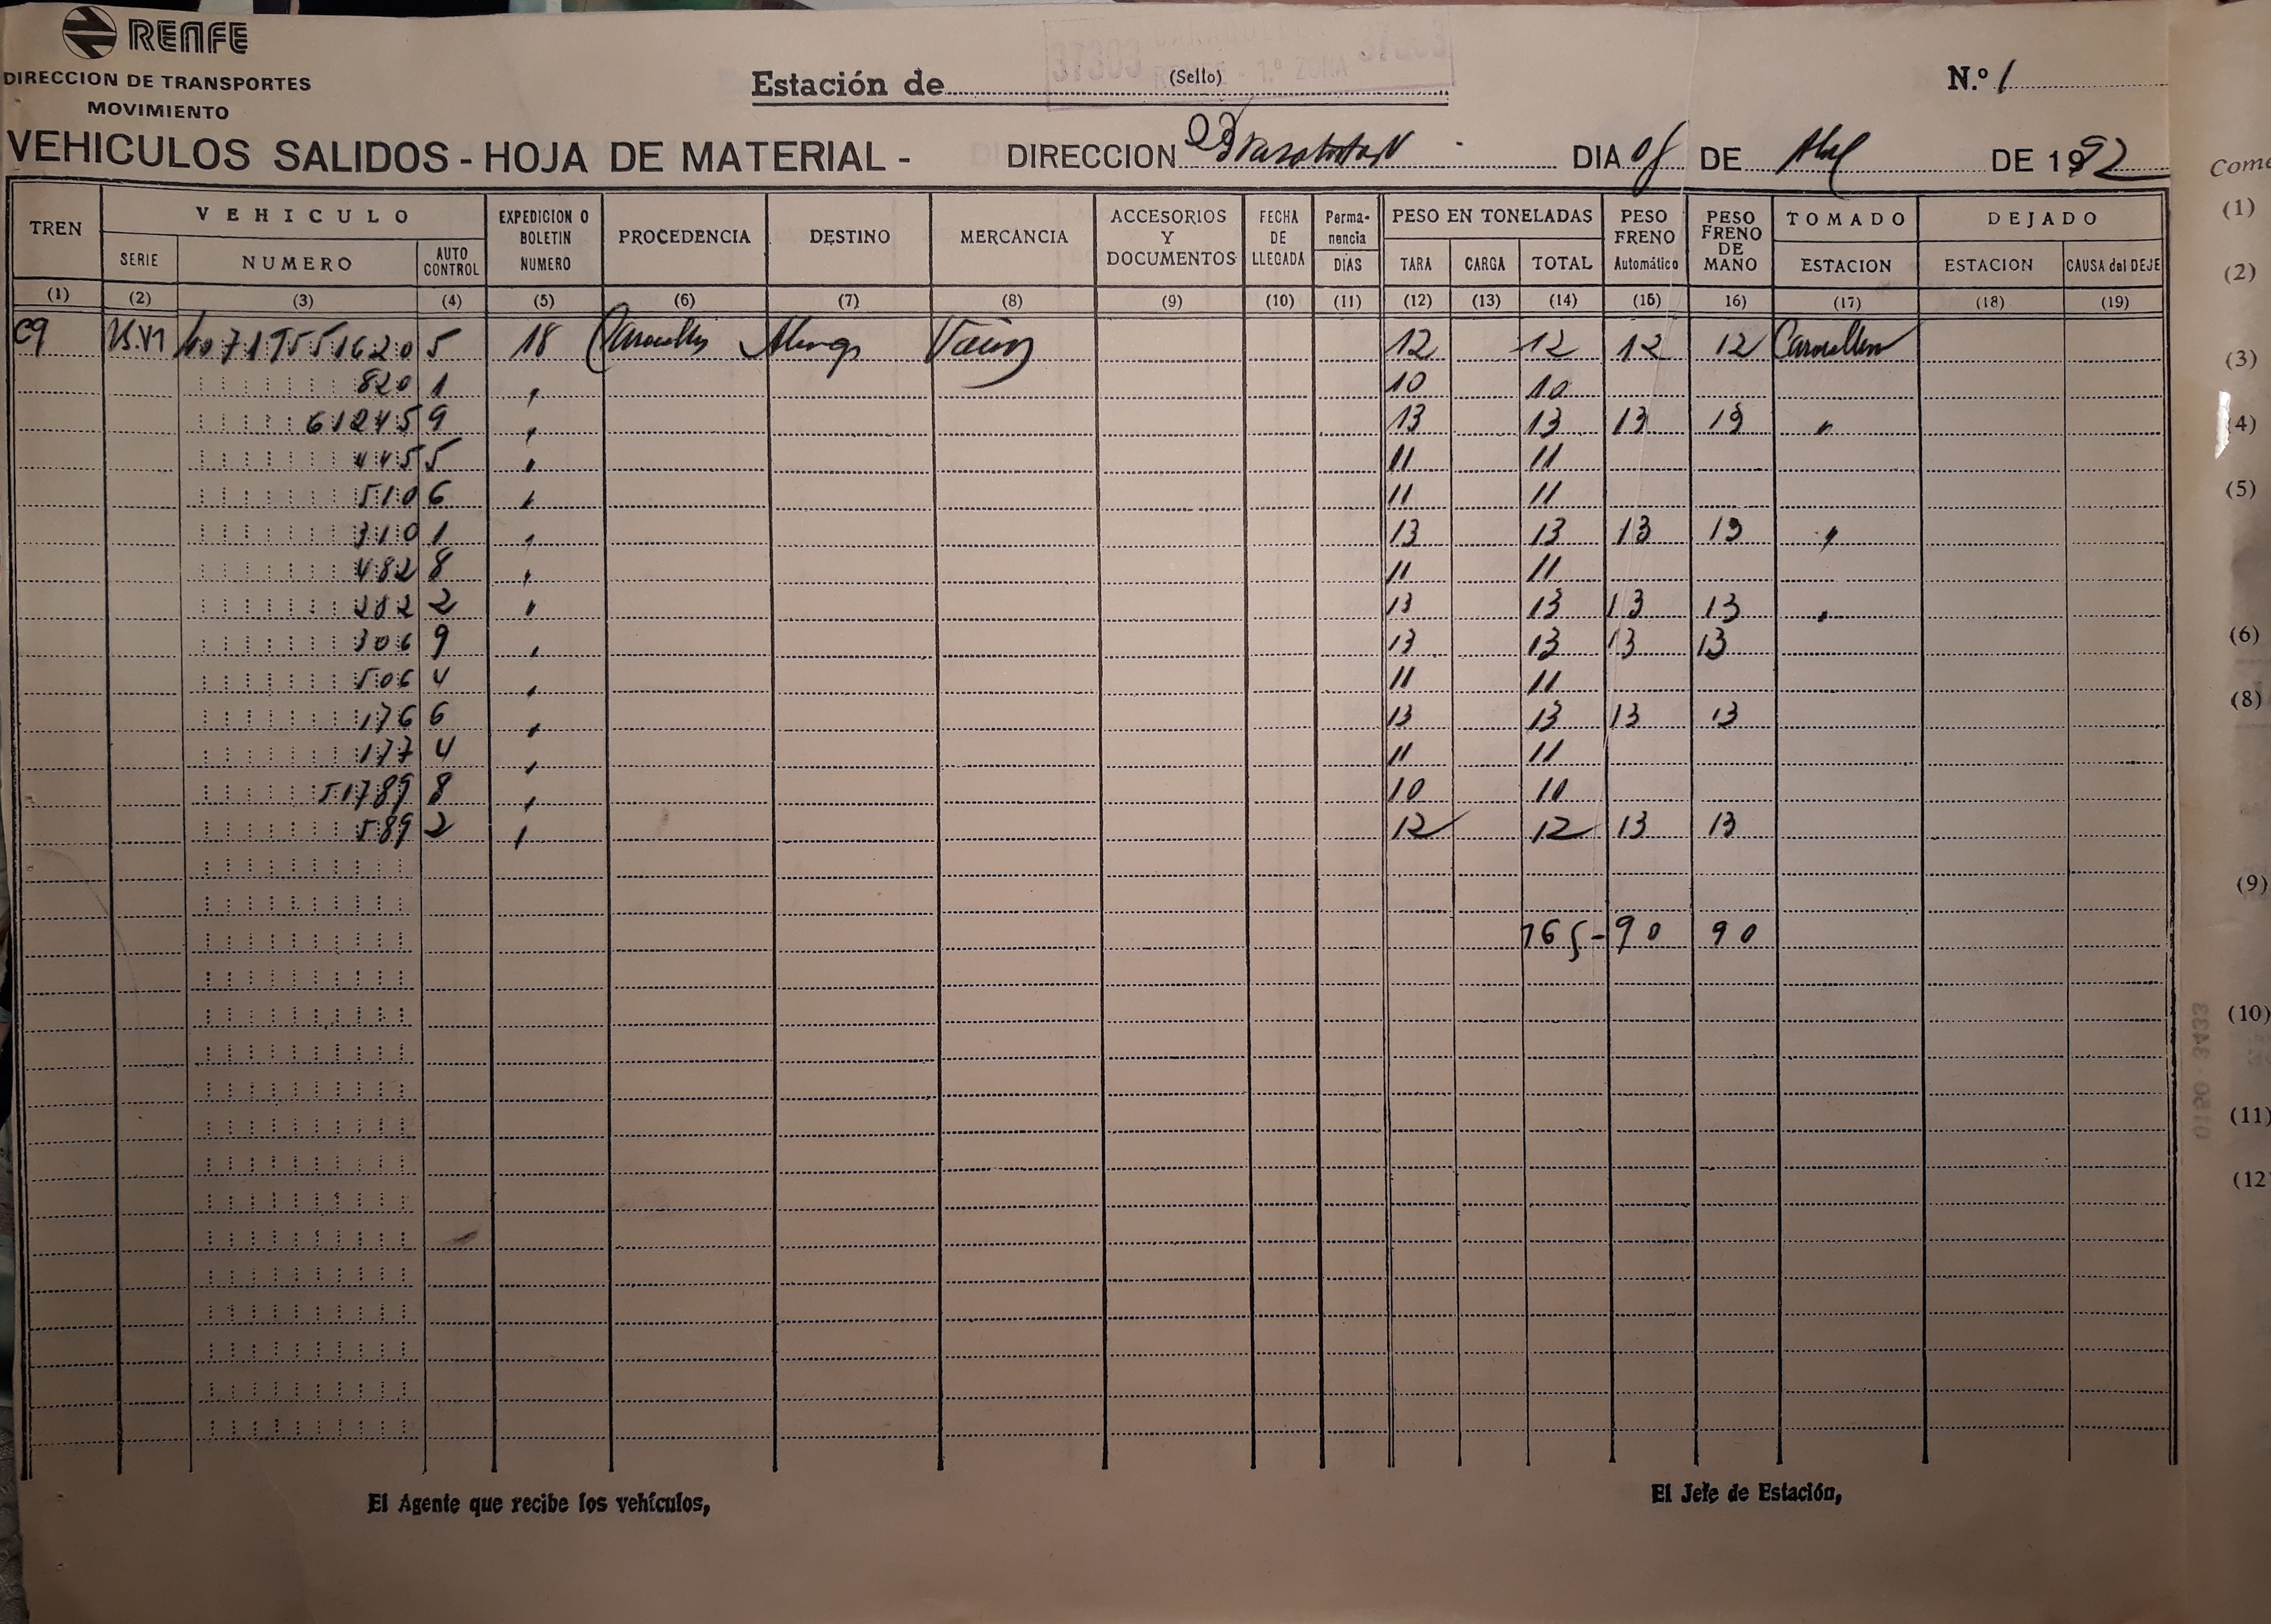 RENFE
DIRECCION DE TRANSPORTES
MOVIMIENTO
Estación de (Sello)
37303 RENFE - 1.ª ZONA 37303
N.º 1
VEHICULOS SALIDOS - HOJA DE MATERIAL - DIRECCION DIA DE DE 1992
TREN VEHICULO EXPEDICION O BOLETIN NUMERO PROCEDENCIA DESTINO MERCANCIA ACCESORIOS Y DOCUMENTOS FECHA DE LLEGADA Perma-nencia DIAS PESO EN TONELADAS PESO FRENO Automático PESO FRENO DE MANO TOMADO DEJADO
SERIE NUMERO AUTO CONTROL TARA CARGA TOTAL ESTACION ESTACION CAUSA del DEJE
(1) (2) (3) (4) (5) (6) (7) (8) (9) (10) (11) (12) (13) (14) (15) 16) (17) (18) (19)
C9 5 18 Vacíos 12 12 12 12
820 1 " 10 10
612459 " 13 13 13 13 "
445 5 " 11 11
510 6 " 11 11
310 1 " 13 13 13 13 "
482 8 " 11 11
282 2 " 13 13 13 13 "
306 9 " 13 13 13 13
506 4 " 11 11
176 6 " 13 13 13 13
177 4 " 11 11
51789 8 " 10 10
589 2 " 12 12 13 13
165 - 90 90
El Agente que recibe los vehículos,
El Jefe de Estación,
Come
(1)
(2)
(3)
4)
(5)
(6)
(8)
(9)
(10)
(11)
(12
0150 - 3433